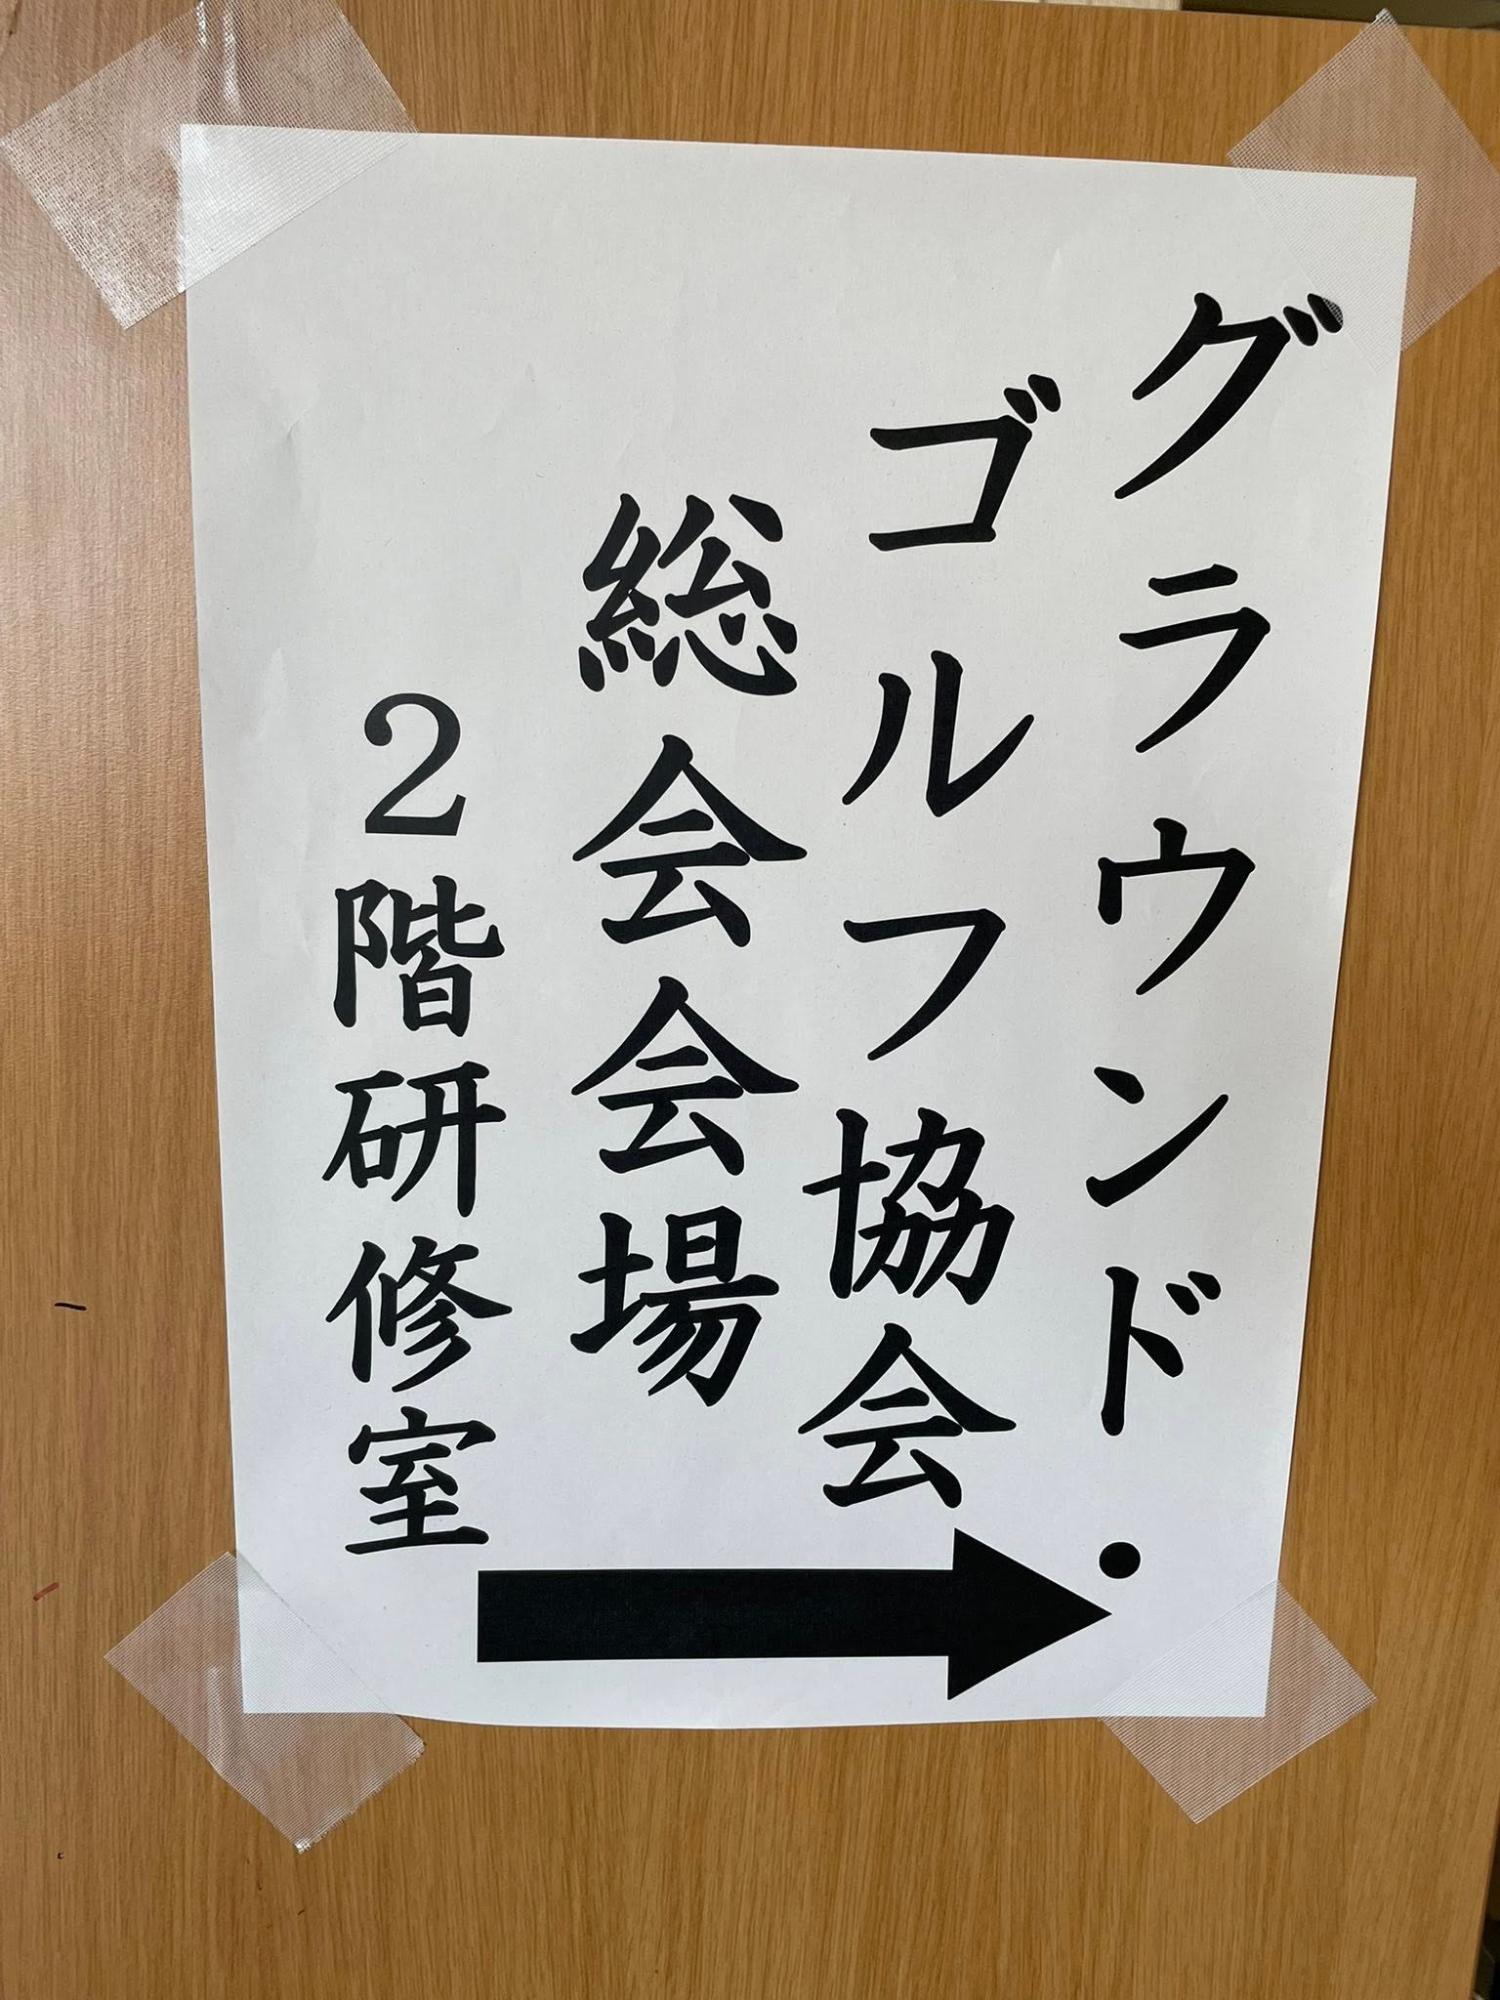 グラウンド・
ゴルフ協会
総会会場
２階研修室